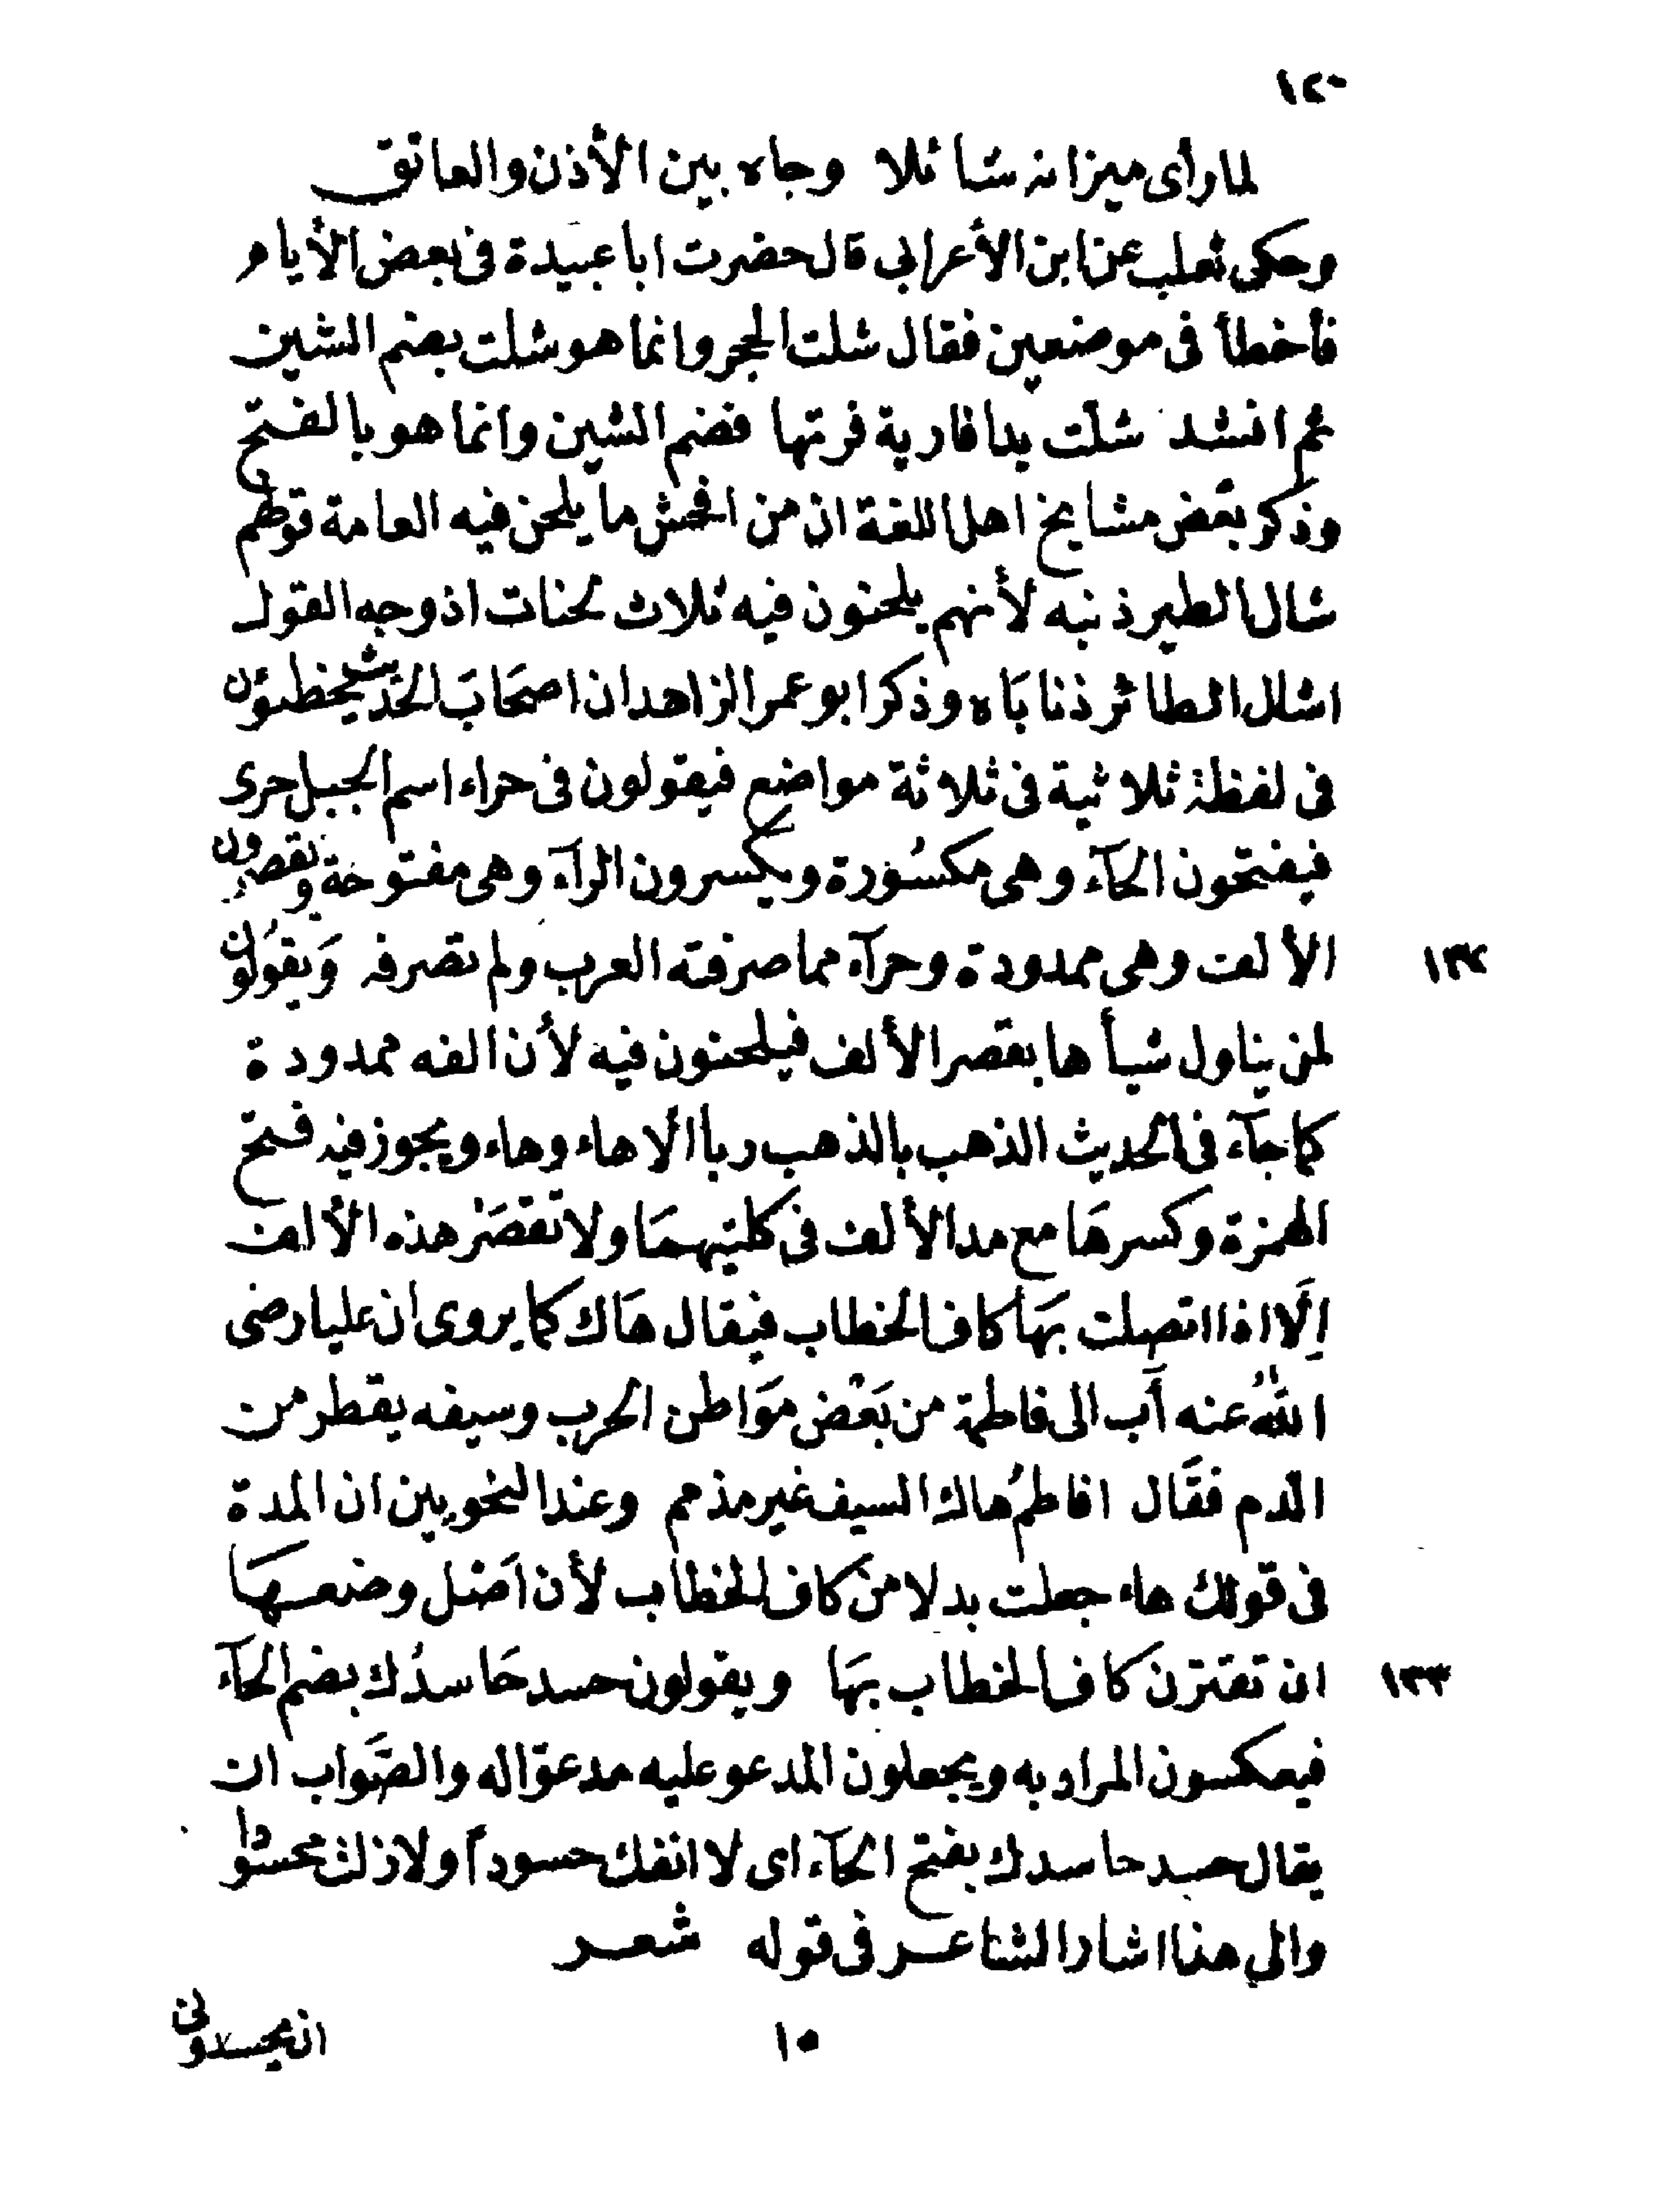 ١٢٠
لما رأى ميزانه شائلا وجاه بين الأذن والعاتق
وحكى ثعلب عن ابن الأعرابي قال حضرت ابا عبيدة فى بعض الأيام
فأخطأ فى موضعين فقال شلت الحجر وانما هو شلت بضم الشين
ثم انشد شلت يدا فارية فرتها فضم الشين وانما هو بالفتح
وذكر بعض مشايخ اهل اللغة ان من افحش ما يلحن فيه العامة قولهم
شال الطير ذنبه لأنهم يلحنون فيه ثلاث لحنات اذ وجه القول
اشال الطائر ذناباه وذكر ابو عمر الزاهد ان اصحاب الحديث يخطئون
فى لفظة ثلاثية فى ثلاثة مواضع فيقولون فى حراء اسم الجبل حرى
فيفتحون الحآء وهى مكسورة ويكسرون الرآء وهى مفتوحة ويقصرون
الألف وهى ممدودة وحرآء مما صرفته العرب ولم تصرفه وَيقولُون
١٣٢
لمن يناول شيأ ها بقصر الألف فيلحنون فيه لأن الفه ممدودة
كما جآء فى الحديث الذهب بالذهب ربا الا هاء وهاء ويجوز فيه فتح
الهمزة وكسرهَا مع مد الألف فى كلتيهمَا ولا تقصَر هذه الألف
اِلَّا اذا اتصلت بهَا كاف الخطاب فيقال هَاك كما يروى ان عليا رضى
اللهُ عنه آب الى فاطمة من بَعْض مَوَاطن الحرب وسيفه يقطر من
الدم فقَال افاطمُ هاك السيف غير مذمم وعند النحويين ان المدة
فى قولك هاء جعلت بدلا من كاف الخطاب لأن اَصْل وضعهَا
ان تقترن كاف الخطاب بهَا ويقولون حسد حَاسدُك بضم الحآء
١٣٣
فيعكسون المراد به ويجعلون المدعو عليه مدعوّا له والصَّواب ان
يقال حسد حاسدك بفتح الحآء اى لا انفك حسوداً ولا زلت محسودا
والى هذا اشار الشاعر فى قوله شعر
١٥
ان يحسدونى